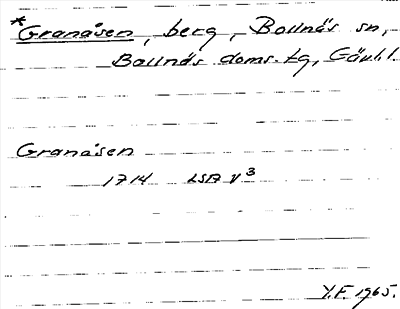 *Granåsen, berg, Bollnäs sn,
Bollnäs doms. tg, Gävl.l.
Granåsen
1714 LSA V3
Y.F. 1965.